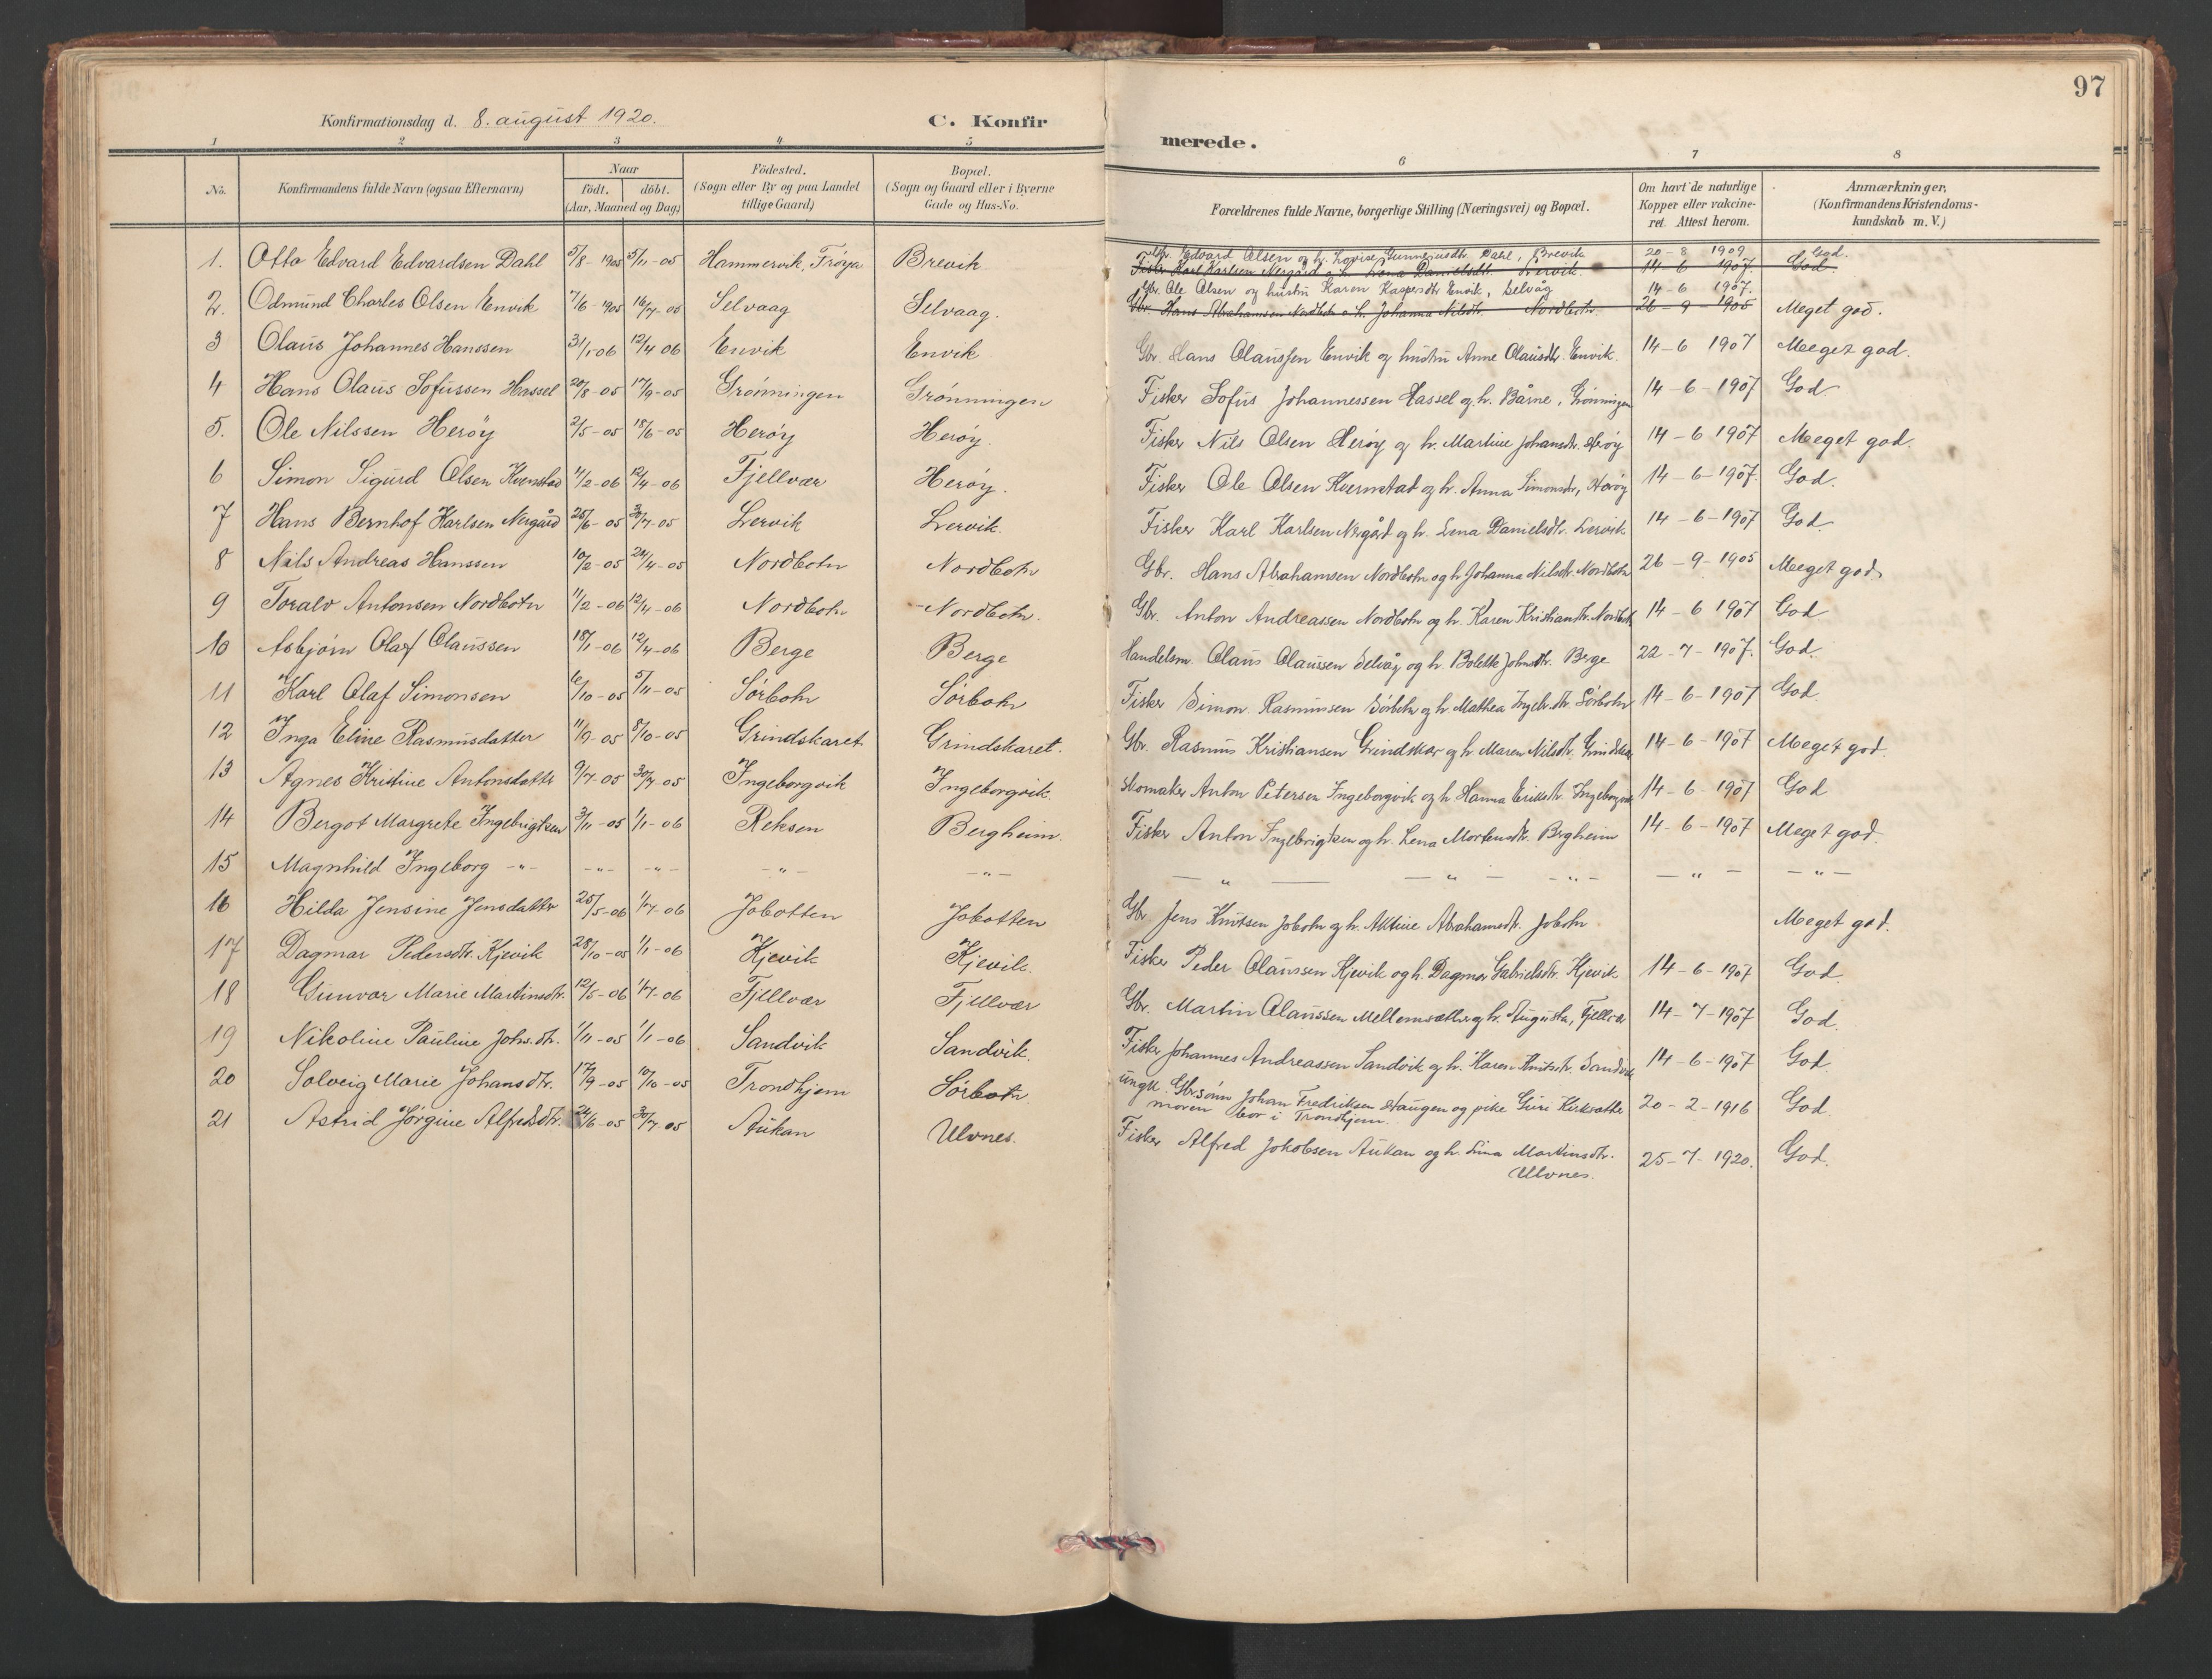 97
Konfirmationsdag d. 8. august 1920.
C. Konfirmerede.
1 2 3 4 5 6 7 8
No.
Konfirmandens fulde Navn (ogsaa Efternavn)
Naar
födt. döbt.
(Aar, Maaned og Dag)
Födested.
(Sogn eller By og paa Landet
tillige Gaard)
Bopæl.
(Sogn og Gaard eller i Byerne
Gade og Hus-No.
Forældrenes fulde Navne, borgerlige Stilling (Næringsvei) og Bopæl.
Om havt de naturlige
Kopper eller vakcine-
ret. Attest herom.
Anmærkninger,
(Konfirmandens Kristendoms-
kundskab m. V.)
1. Otto Edvard Edvardsen Dahl 5/8-1905 5/11-05 Hammervik, Frøya Brevik Gbr. Edvard Olsen og h. Lovise Gunnerusdtr. Dahl, Brevik 20-8 1909 God.
Fisker Karl Karlsen Nergård o. h. Lena Danielsdtr. Lervik. 14-6 1907. God
2. Odmund Charles Olsen Envik 7/6-1905 16/7-05 Selvaag Selvaag. Gbr. Ole Olsen og hustru Karen Kaspersdtr Envik, Selvåg 14-6 1907. Meget god.
Gbr. Hans Abrahamsen Nordbotn o. h. Johanna Nilsdtr. Nordbotn. 26-9-1905
3 Olaus Johannes Hanssen 31/1 06 12/4 06 Envik Envik Gbr. Hans Olaussen Envik og hustru Anne Olausdtr. Envik. 14-6 1907 Meeget god.
4 Hans Olaus Sofussen Hassel 20/8-05 17/9-05 Grønningen Grønningen Fisker Sofus Johannessen Hassel og h. Bårne, Grønningen 14-6-1907 God
5. Ole Nilssen Herøy 2/5-05 18/6-05 Herøy Herøy. Fisker Nils Olsen Herøy og h. Martine Johansdtr. Herøy 14-6 1907 Meeget god.
6 Simon Sigurd Olsen Kvernstad 11/2-06 12/4-06 Fjellvær Herøy. Fisker Ole Olsen Kvernstad og h. Anna Simonsdtr, Herøy 14-6-1907. God.
7 Hans Bernhof Karlsen Nergård 25/6-05 30/7-05 Lervik Lervik. Fisker Karl Karlsen Nergård og h. Lena Danielsdtr. Lervik 14-6-1907 God
8 Nils Andreas Hanssen 10/2-05 24/4-05 Nordbotn Nordbotn Gbr. Hans Abrahamsen Nordbotn og h Johanna Nilsdtr. Nordbotn 26-9-1905 Meeget god
9 Toralv Antonsen Nordbotn 11/2-06 12/4-06 Nordbotn Nordbotn. Gbr. Anton Andreassen Nordbotn og h. Karen Kristiansdtr. Nordbotn 14-6 1907 God
10 Asbjørn Olaf Olaussen 18/1-06 12/4-06 Berge Berge Handelsm. Olaus Olaussen Selvåg og h. Bolette Johnsdtr. Berge 22-7-1907. God.
11 Karl Olaf Simonsen 6/10-05 5/11-05 Sørbotn Sørbotn Fisker Simon Rasmussen Sørbotn og h Mathea Ingebr.dtr. Sørbotn 14-6-1907 God
12 Inga Eline Rasmusdatter 11/9-05 8/10-05 Grindskaret. Grindskaret. Gbr. Rasmus Kristiansen Grindskar og h Maren Nilsdtr, Grindskar 14-6-1907 Meeget god.
13 Agnes Kristine Antonsdatter 9/7-05 30/7-05 Ingeborgvik Ingeborgvik. Skomaker Anton Petersen Ingeborgvik og h. Hanna Eriksdtr. Ingeborgvik 14-6-1907 God
14 Bergot Margrete Ingebrigtsen 3/11-05 1/1-06 Reksen Bergheim. Fisker Anton Ingebrigtsen og h. Lena Mortensdtr. Bergheim 14-6-1907 Meget god.
15 Magnhild Ingeborg -"- -"- -"- -"- -"- — " — — " — -"- — " — — " —
16 Hilda Jensine Jensdatter 25/5-06 1/7-06 Jobotten Jobotten Gbr. Jens Knutsen Jobotn og h. Aktine Abrahamsdtr. Jobotn Meeget god.
17 Dagmar Pedersdtr. Kjevik 28/10-05 1/1-06 Kjevik Kjevik. Fisker Peder Olaussen Kjevik og h. Dagmar Gabrielsdtr. Kjevik 14-6-1907 God.
18 Gunvor Marie Martinsdtr. 12/5-06 1/7-06 Fjellvær Fjellvær Gbr. Martin Olaussen Mellemsæther og h. Augusta, Fjellvær 14-7-1907 God.
19 Nikoline Pauline Johs.dtr. 1/11-05 1/1-06 Sandvik Sandvik. Fisker Johannes Andreassen Sandvik og h. Karen Knutsdtr. Sandvik 14-6-1907 God.
20 Solveig Marie Johansdtr. 17/9-05 10/10-05 Trondhjem Sørbotn. ungk. Gbr.sønn Johan Fredriksen Staugen og pike Guri Kirksæther 20-2-1916 God.
moren bor i Trondhjem.
21 Astrid Jørgine Alfredsdtr. 24/6-05 30/7 05 Aukan Ulvnes. Fisker Alfred Jakobsen Aukan og h. Lina Martinsdtr. 25-7-1920. God.
Ulvnes.